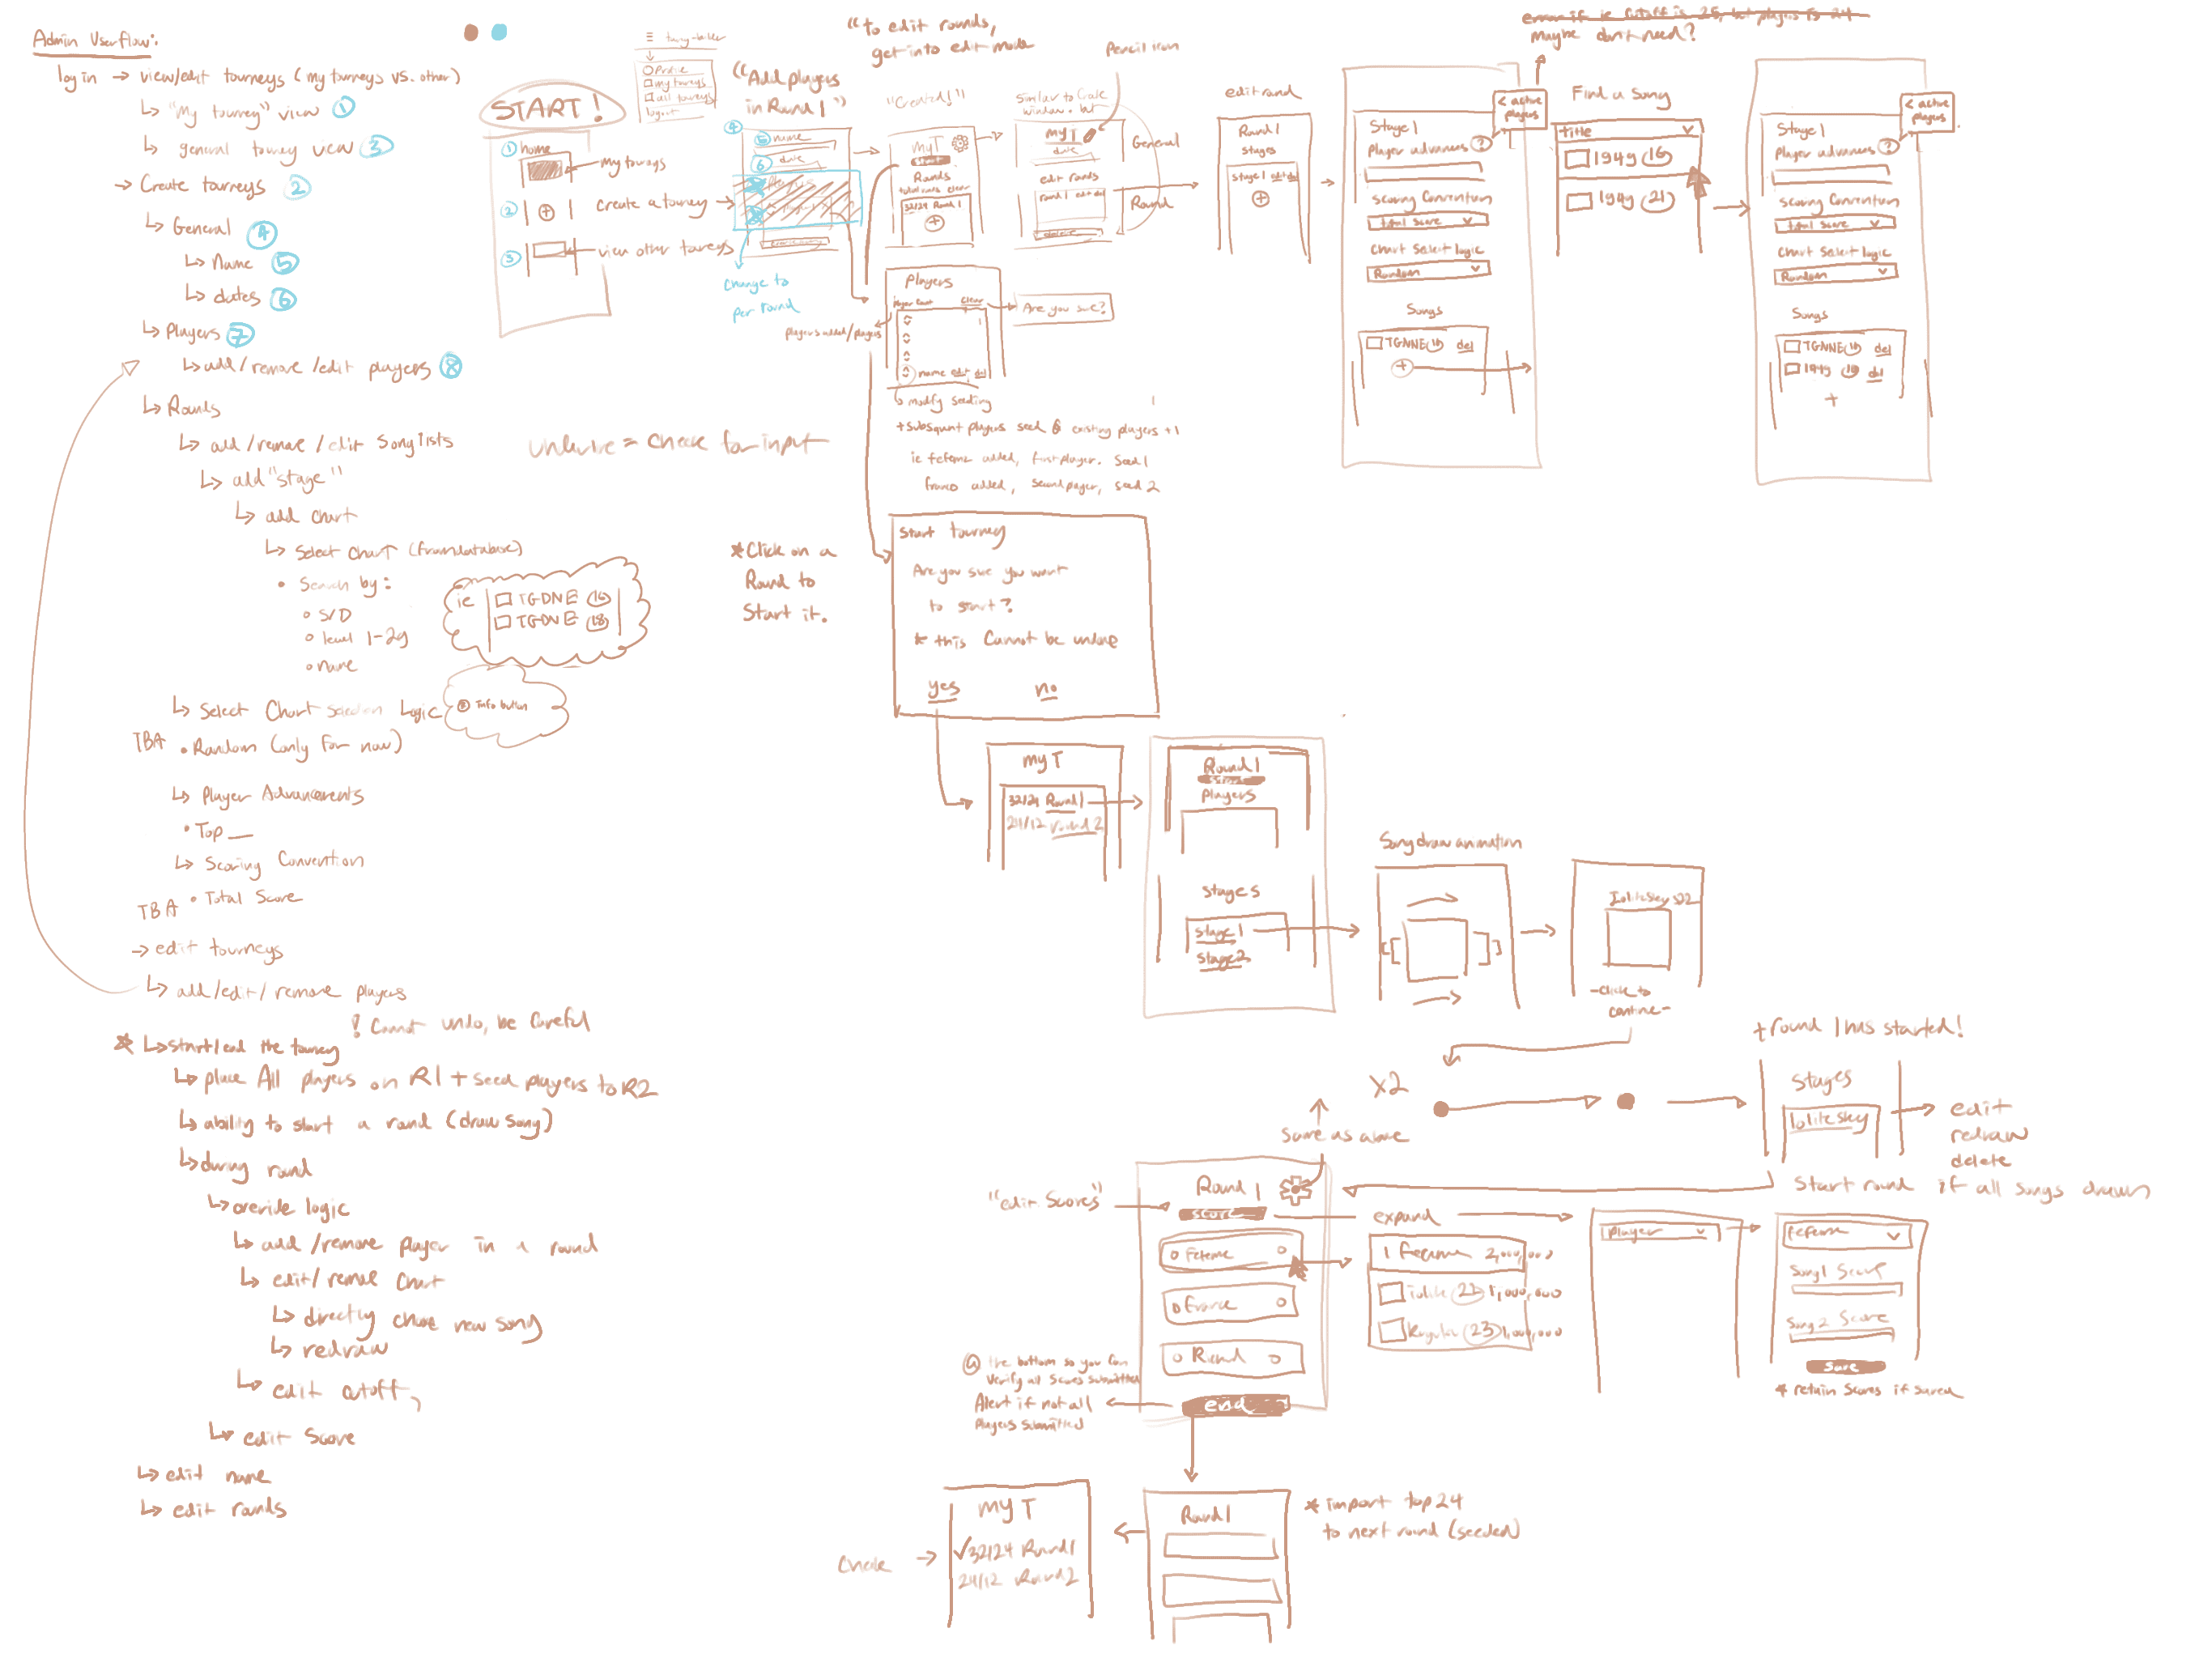 Admin Userflow:
log in → view/edit tourneys (my tourneys vs. other)
↳ "My tourney" view ①
↳ general tourney view ③
→ Create tourneys ②
↳ General ④
↳ Name ⑤
↳ dates ⑥
↳ Players ⑦
↳ add/remove/edit players ⑧
↳ Rounds
↳ add/remove/edit songlists
↳ add "stage"
↳ add chart
↳ Select Chart (from database)
• Search by:
○ S/D
○ level 1-29
○ name
ie
TGDNE 16
TGDNE 18
↳ Select Chart Selection Logic
Info button
TBA • Random (only for now)
↳ Player Advancements
• Top __
↳ Scoring Convention
TBA • Total Score
→ edit tourneys
↳ add/edit/remove players
! Cannot undo, be careful
* ↳ start/end the tourney
↳ place All players on R1 + seed players to R2
↳ ability to start a round (draw song)
↳ during round
↳ override logic
↳ add/remove player in a round
↳ edit/remove chart
↳ directly chose new song
↳ redraw
↳ edit cutoff
↳ edit score
↳ edit name
↳ edit rounds
START!
① home
my tourneys
② +
create a tourney
③
view other tourneys
Profile
my tourneys
all tourneys
logout
"Add players
in Round 1"
④
⑤ name
⑥ date
change to
per round
"to edit rounds,
get into edit mode
"Created!"
My T
start
Rounds
32/24 Round 1
+
pencil icon
Similar to Create
window, but
my T
date
edit rounds
round 1 edit del
General
Round
edit round
Round 1
stages
stage 1 edit del
+
error if ie cutoff is 25, but players is 24
maybe don't need?
< active
players
Stage 1
Player advances ?
scoring convention
total score
chart select logic
Random
Songs
TGNNE 16 del
+
Find a Song
title
1949 16
1949 21
< active
players
Stage 1
Player advances ?
scoring convention
total score
chart select logic
Random
Songs
TGNNE 16 del
1949 16 del
+
players
player count clear
name edit del
Are you sure?
players added/players
modify seeding
+ subsequent players seed @ existing players +1
ie feferne added, first player. Seed 1
franco added, second player, seed 2
* Click on a
Round to
Start it.
Start tourney
Are you sure you want
to start?
* this Cannot be undone
yes no
my T
32/24 Round 1
24/12 round 2
Round 1
start
players
stages
stage 1
stage 2
Song draw animation
Iolite Sky S22
-click to
continue-
x2
+ round 1 has started!
Stages
Iolite Sky
edit
redraw
delete
Start round if all songs drawn
same as above
"edit Scores"
Round 1
score
end
expand
2,000,000
22 1,000,000
23 1,000,000
player
Song 1 Score
Song 2 Score
save
* retain scores if saved
@ the bottom so you can
verify all scores submitted
Alert if not all
players submitted
Round 1
* import top 24
to next round (seeded)
my T
✓32/24 Round 1
24/12 Round 2